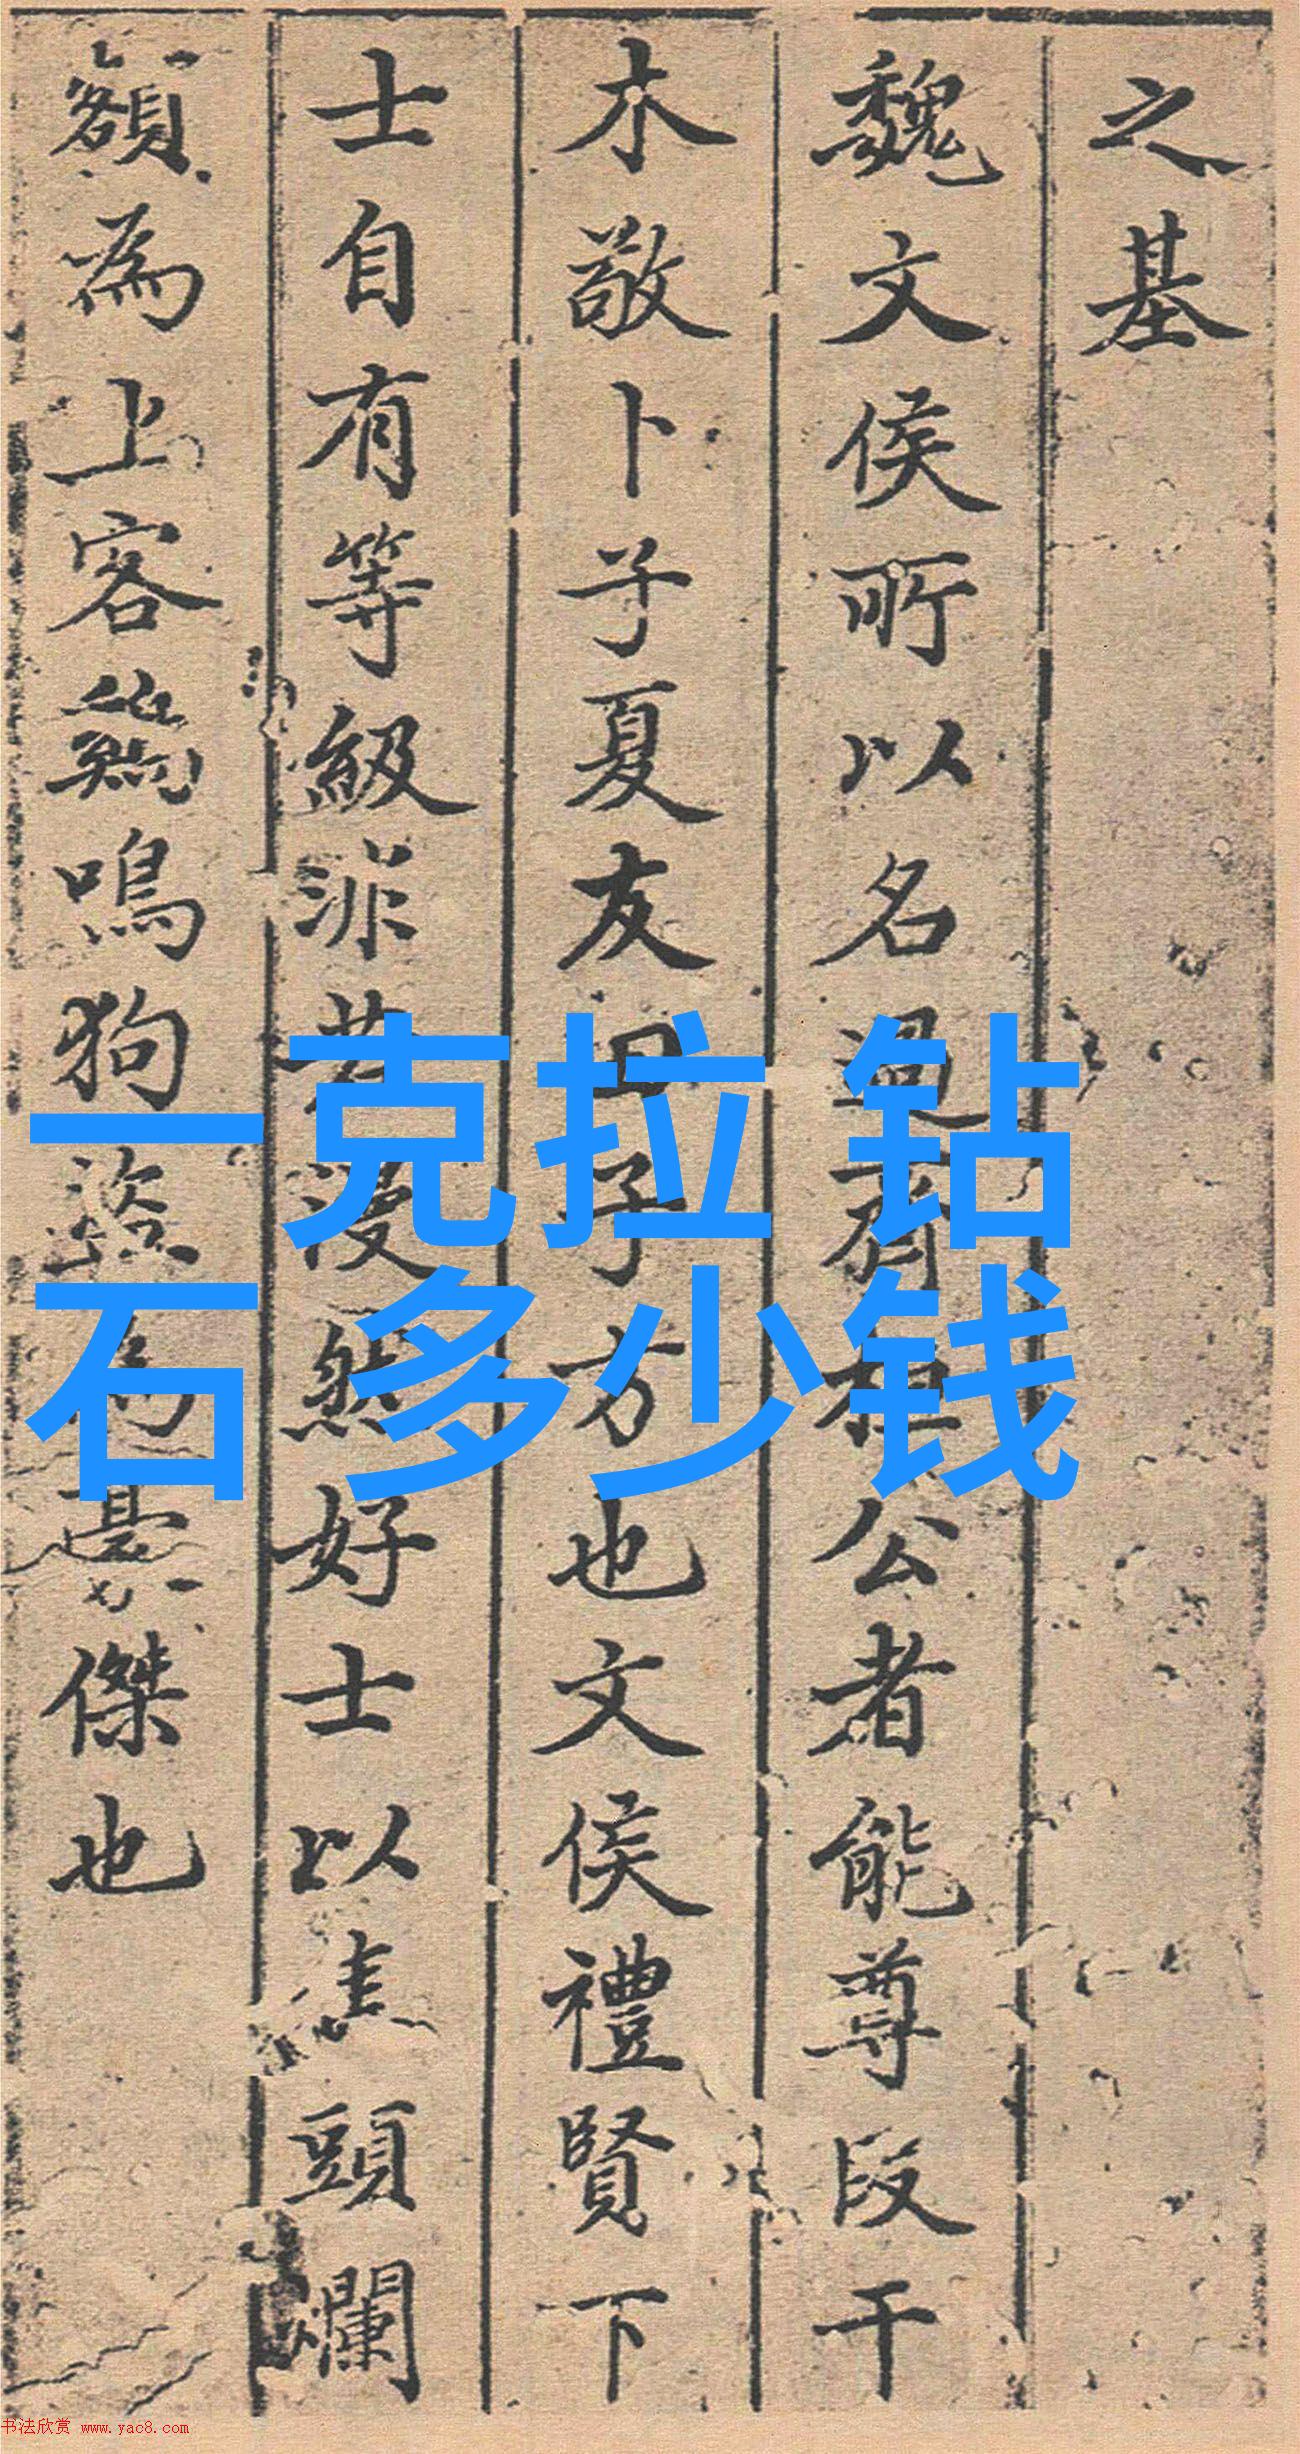 之基
魏文侯所以名過齊桓公者能尊段干
木敬卜子夏友田子方也文侯禮賢下
士自有等級非若漫然好士以焦頭爛
額為上客鷄鳴狗盜為豪傑也
一克拉钻
石多少钱
书法欣赏 www.yac8.com